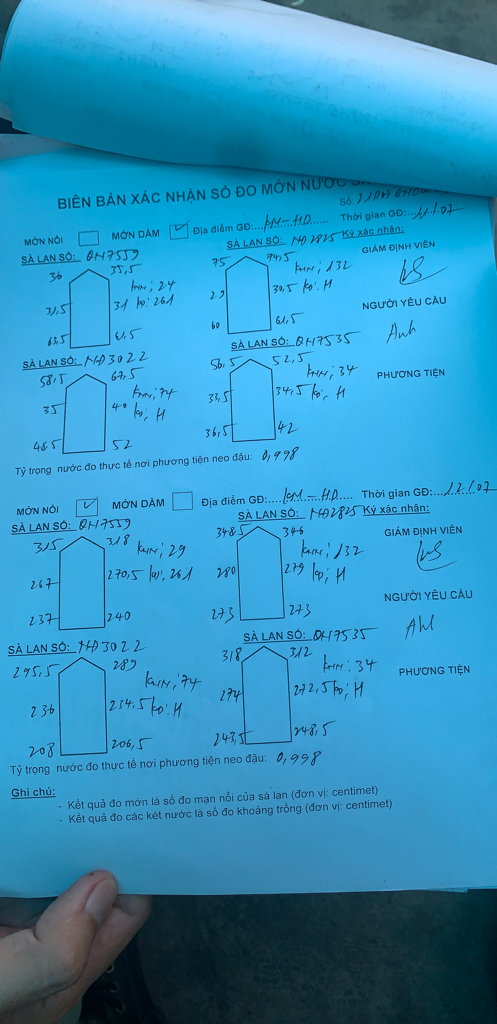 BIÊN BẢN XÁC NHẬN SỐ ĐO MỚN NƯỚC
Số:
MỚN NỔI MỚN DẦM Địa điểm GĐ:... KM - HD...... Thời gian GĐ:...11/07
SÀ LAN SỐ: QN7559 SÀ LAN SỐ: NĐ2825 Ký xác nhận:
36 35,5 75 74,5 GIÁM ĐỊNH VIÊN
KMN; 24 KMN; 132
31,5 31 KĐ: 261 29 30,5 KĐ: H
NGƯỜI YÊU CẦU
63,5 61,5 60 61,5
Anh
SÀ LAN SỐ: NĐ3022 SÀ LAN SỐ: QN7535
58,5 67,5 56,5 52,5
KMN; 74 KMN; 34 PHƯƠNG TIỆN
35 40 KĐ; H 33,5 34,5 KĐ, H
48,5 52 36,5 42
Tỷ trọng nước đo thực tế nơi phương tiện neo đậu: 0,998
MỚN NỔI MỚN DẦM Địa điểm GĐ:... KM - HD.... Thời gian GĐ:....12/07
SÀ LAN SỐ: QN7559 SÀ LAN SỐ: NĐ2825 Ký xác nhận:
315 318 348,5 346 GIÁM ĐỊNH VIÊN
KMN; 29 KMN; 132
267 270,5 KĐ: 261 280 279 KĐ; H
NGƯỜI YÊU CẦU
237 240 273 273
Anh
SÀ LAN SỐ: NĐ3022 SÀ LAN SỐ: QN7535
295,5 289 318 312
KMN; 74 KMN: 34 PHƯƠNG TIỆN
236 234,5 KĐ: H 274 272,5 KĐ; H
208 206,5 243,5 248,5
Tỷ trọng nước đo thực tế nơi phương tiện neo đậu: 0,998
Ghi chú:
- Kết quả đo mớn là số đo mạn nổi của sà lan (đơn vị: centimet)
- Kết quả đo các két nước là số đo khoảng trống (đơn vị: centimet)